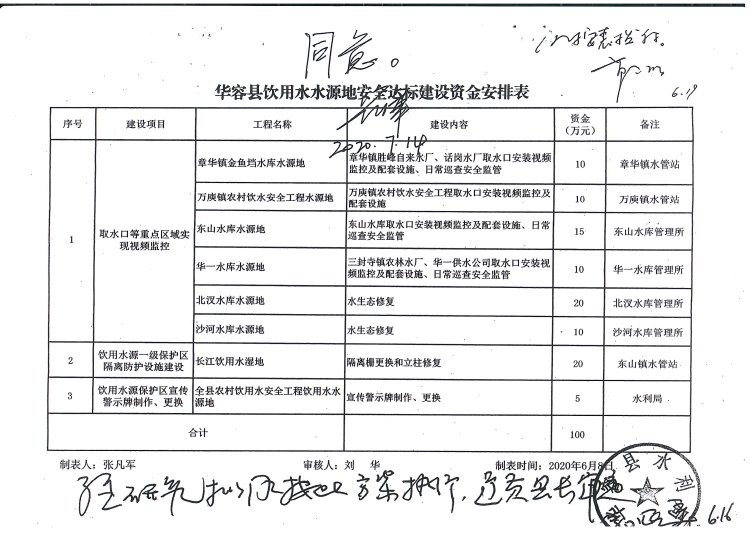 同意。
6.19
华容县饮用水水源地安全达标建设资金安排表
2020.7.14
序号 建设项目 工程名称 建设内容 资金（万元） 备注
1 取水口等重点区域实现视频监控
章华镇金鱼垱水库水源地 章华镇胜峰自来水厂、话岗水厂取水口安装视频监控及配套设施、日常巡查安全监管 10 章华镇水管站
万庾镇农村饮水安全工程水源地 万庾镇农村饮水安全工程取水口安装视频监控及配套设施 10 万庾镇水管站
东山水库水源地 东山水库取水口安装视频监控及配套设施、日常巡查安全监管 15 东山水库管理所
华一水库水源地 三封寺镇农林水厂、华一供水公司取水口安装视频监控及配套设施、日常巡查安全监管 10 华一水库管理所
北汊水库水源地 水生态修复 20 北汊水库管理所
沙河水库水源地 水生态修复 10 沙河水库管理所
2 饮用水源一级保护区隔离防护设施建设 长江饮用水湿地 隔离栅更换和立柱修复 20 东山镇水管站
3 饮用水源保护区宣传警示牌制作、更换 全县农村饮用水安全工程饮用水水源地 宣传警示牌制作、更换 5 水利局
合计 100
制表人：张凡军 审核人：刘 华 制表时间：2020年6月8日
县水利
6.16